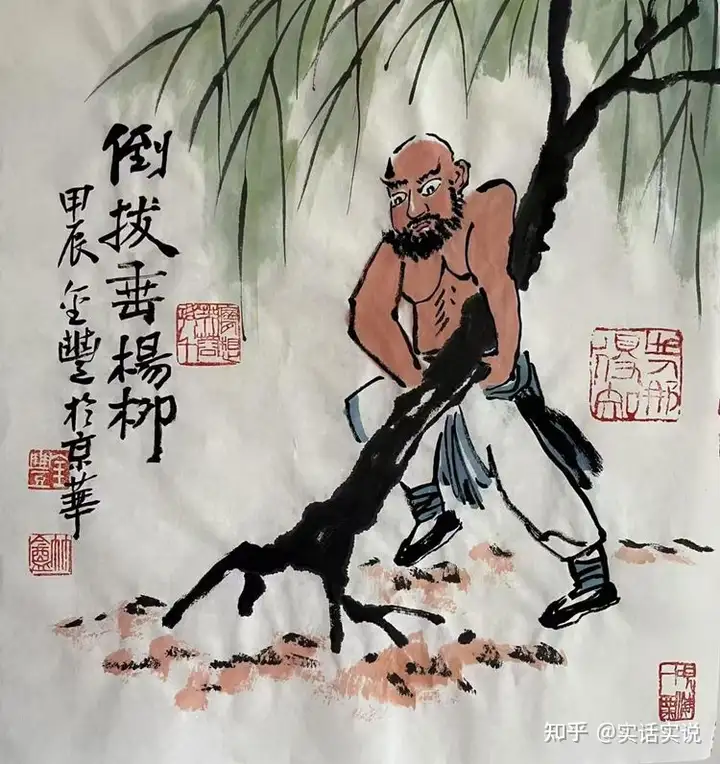 倒拔垂楊柳
甲辰金豐於京華
金豐
知乎 @实话实说